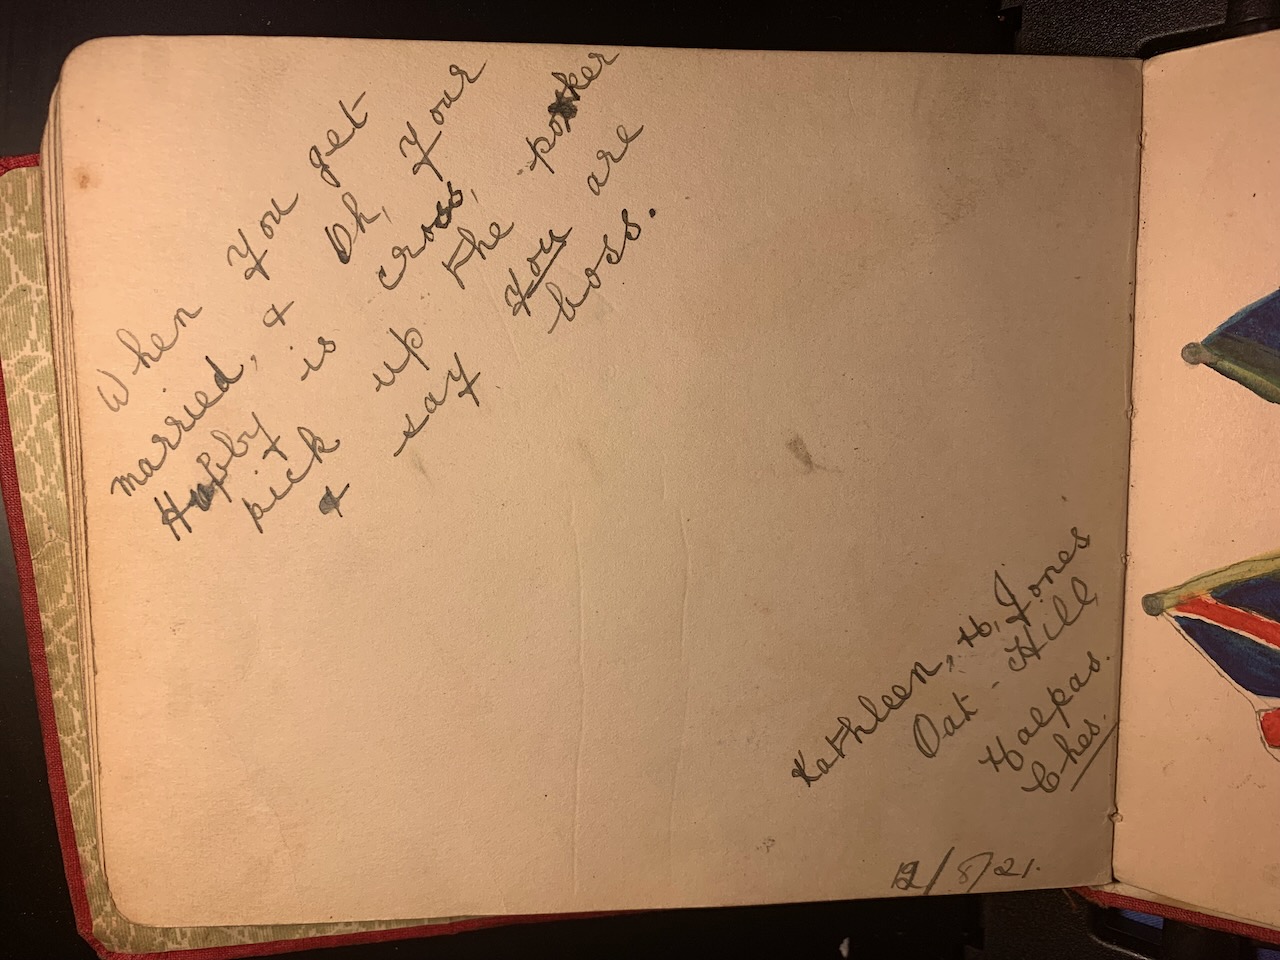 When you get
married, & Oh, your
Hubby is cross,
pick up the poker
& say you are
boss.
Kathleen, M, Jones
Oak-Hill
Malpas.
Ches.
12/8/21.